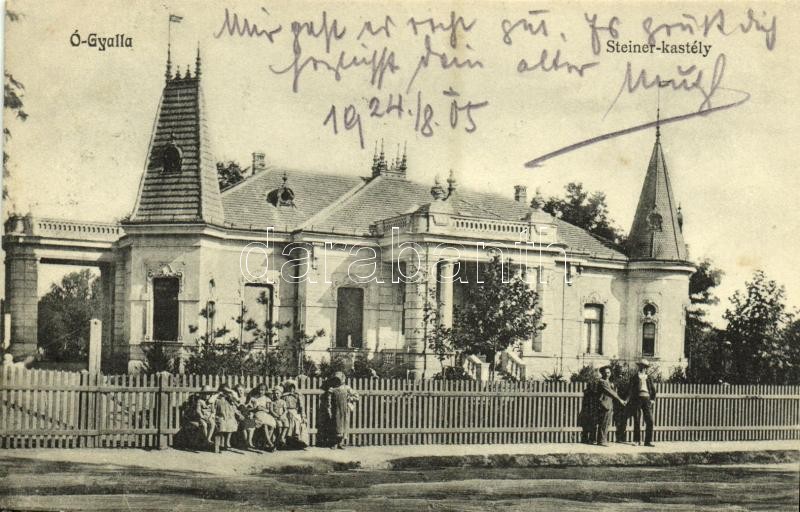 Ó-Gyalla
Steiner-kastély
Mir geht es recht gut. Es grüßt dich
herzlichst dein alter
19 24./8. 05
darabanth